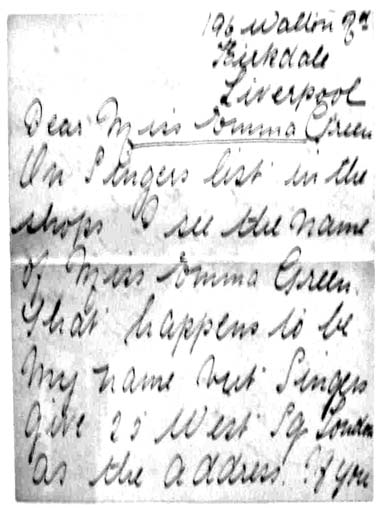 196 Walton Rd
Kirkdale
Liverpool
Dear Miss Emma Green
On Singers list in the
shops I see the name
of Miss Emma Green.
That happens to be
my name but Singers
give 25 West Sq London
as the address. If you